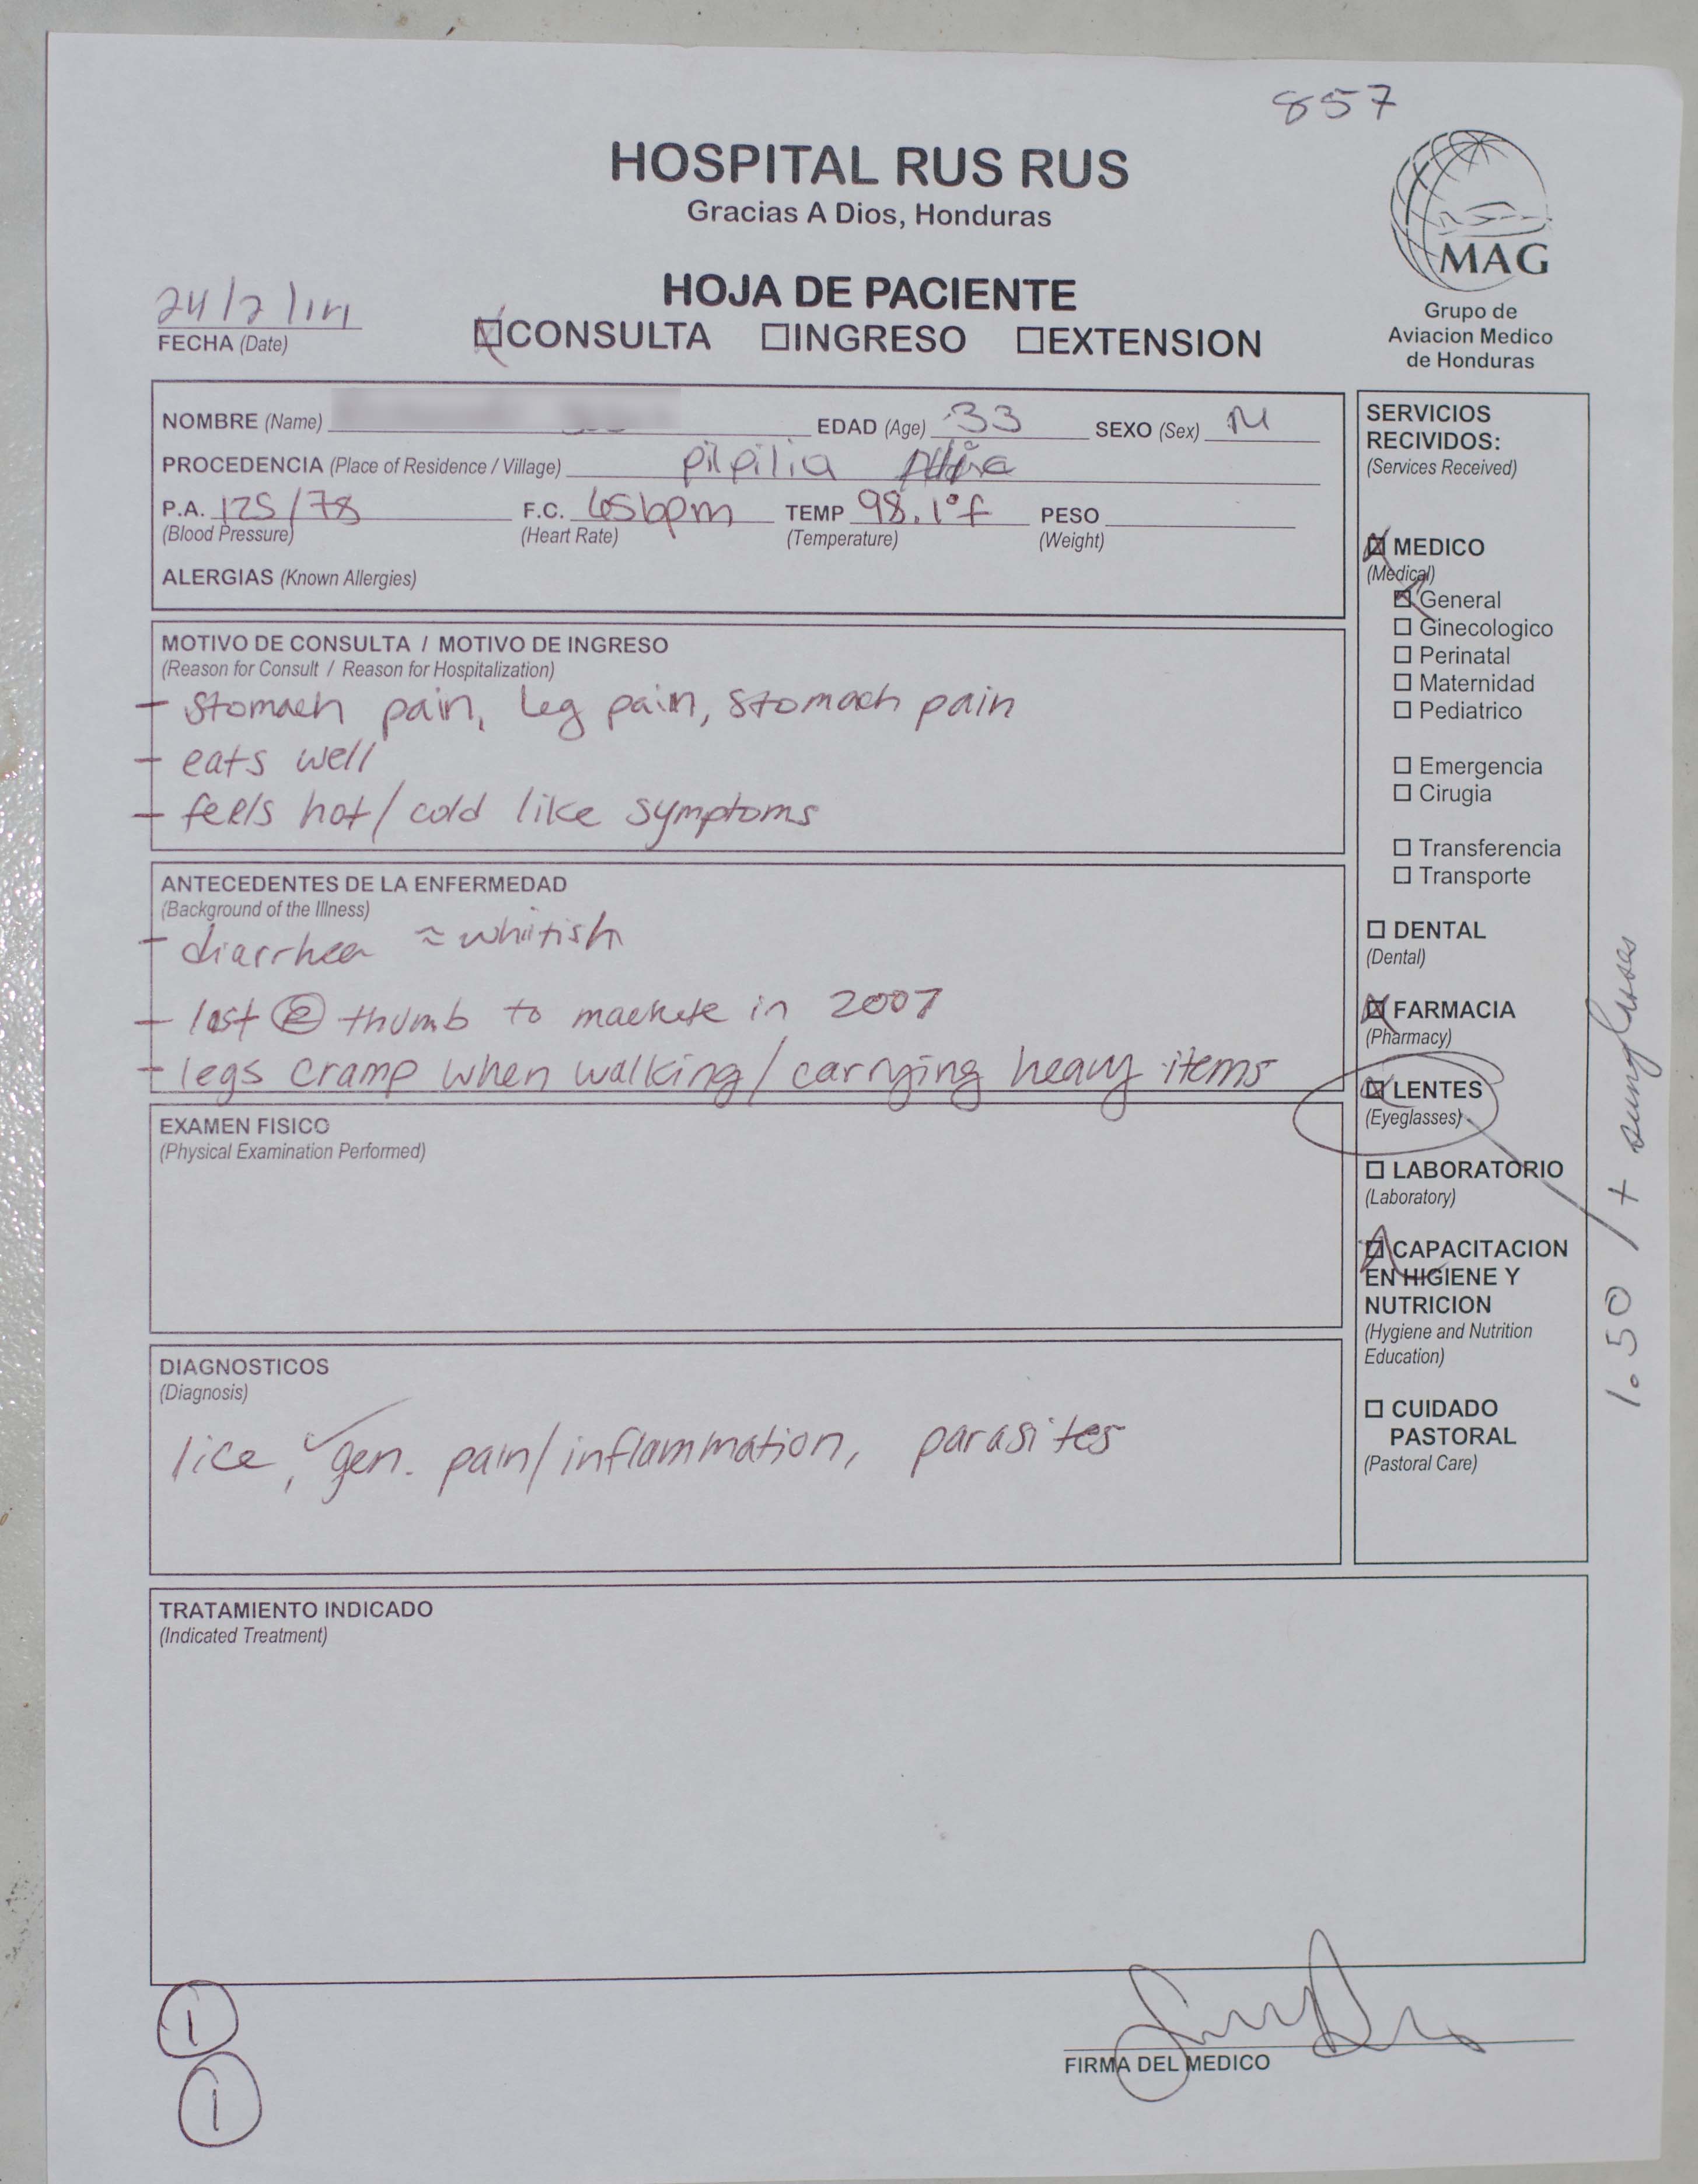 857
HOSPITAL RUS RUS
Gracias A Dios, Honduras
MAG
Grupo de
Aviacion Medico
de Honduras
HOJA DE PACIENTE
24/2/14
FECHA (Date)
CONSULTA INGRESO EXTENSION
NOMBRE (Name) EDAD (Age) 33 SEXO (Sex) M
PROCEDENCIA (Place of Residence / Village) pilpilia
P.A. 125/78 F.C. 65bpm TEMP 98.1°f PESO
(Blood Pressure) (Heart Rate) (Temperature) (Weight)
ALERGIAS (Known Allergies)
MOTIVO DE CONSULTA / MOTIVO DE INGRESO
(Reason for Consult / Reason for Hospitalization)
- stomach pain, leg pain, stomach pain
- eats well
- feels hot/cold like symptoms
ANTECEDENTES DE LA ENFERMEDAD
(Background of the Illness)
- diarrhea ≈ whitish
- lost thumb to machete in 2007
- legs cramp when walking/carrying heavy items
EXAMEN FISICO
(Physical Examination Performed)
DIAGNOSTICOS
(Diagnosis)
lice, gen. pain/inflammation, parasites
TRATAMIENTO INDICADO
(Indicated Treatment)
SERVICIOS
RECIVIDOS:
(Services Received)
MEDICO
(Medical)
General
Ginecologico
Perinatal
Maternidad
Pediatrico
Emergencia
Cirugia
Transferencia
Transporte
DENTAL
(Dental)
FARMACIA
(Pharmacy)
LENTES
(Eyeglasses)
LABORATORIO
(Laboratory)
CAPACITACION
EN HIGIENE Y
NUTRICION
(Hygiene and Nutrition
Education)
CUIDADO
PASTORAL
(Pastoral Care)
1.50 / + sunglasses
1
1
FIRMA DEL MEDICO